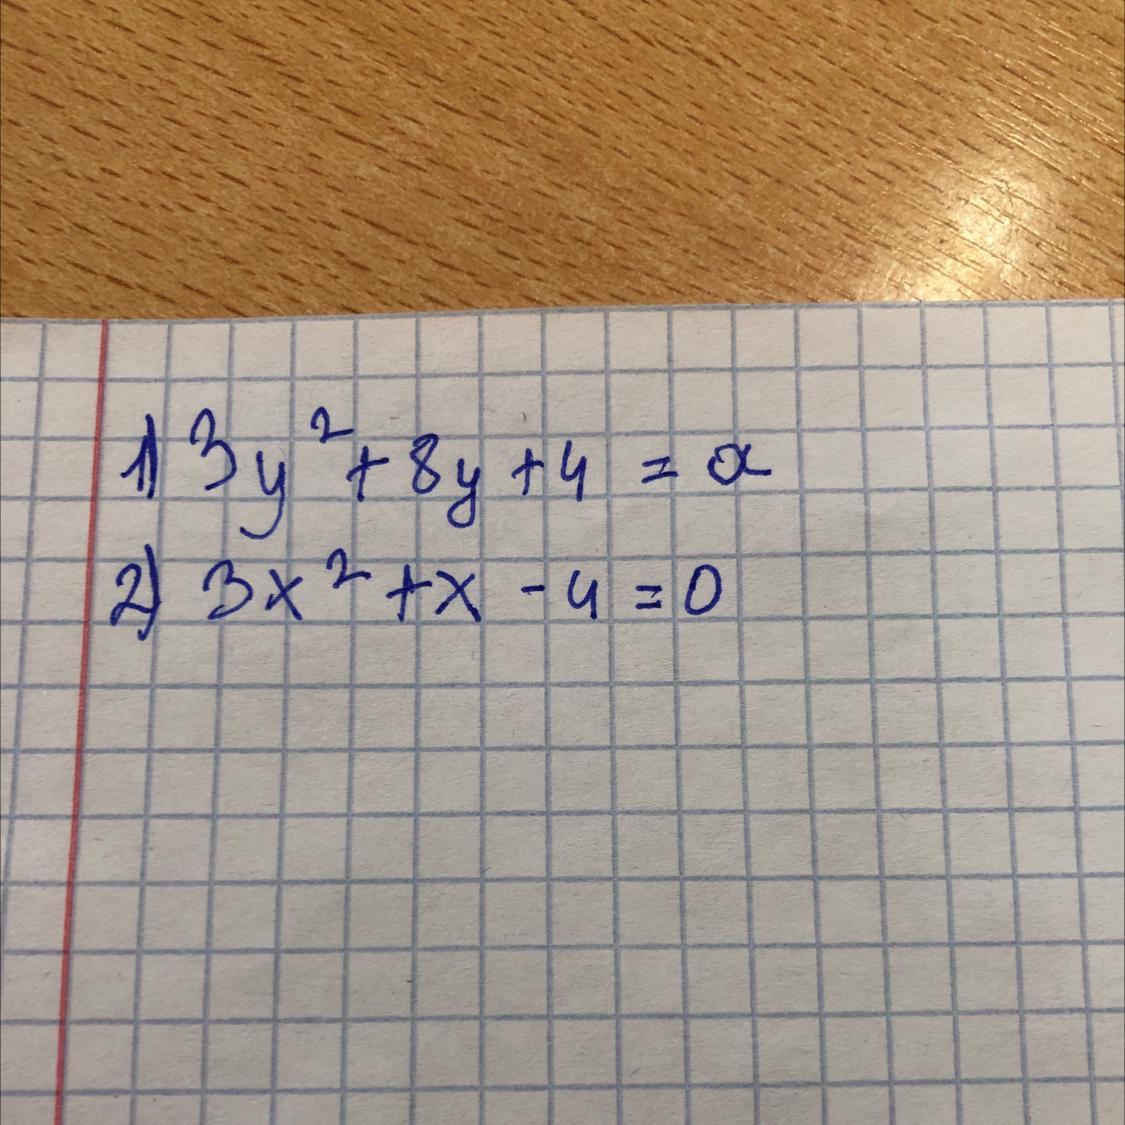 1) 3y² + 8y + 4 = a
2) 3x² + x - 4 = 0